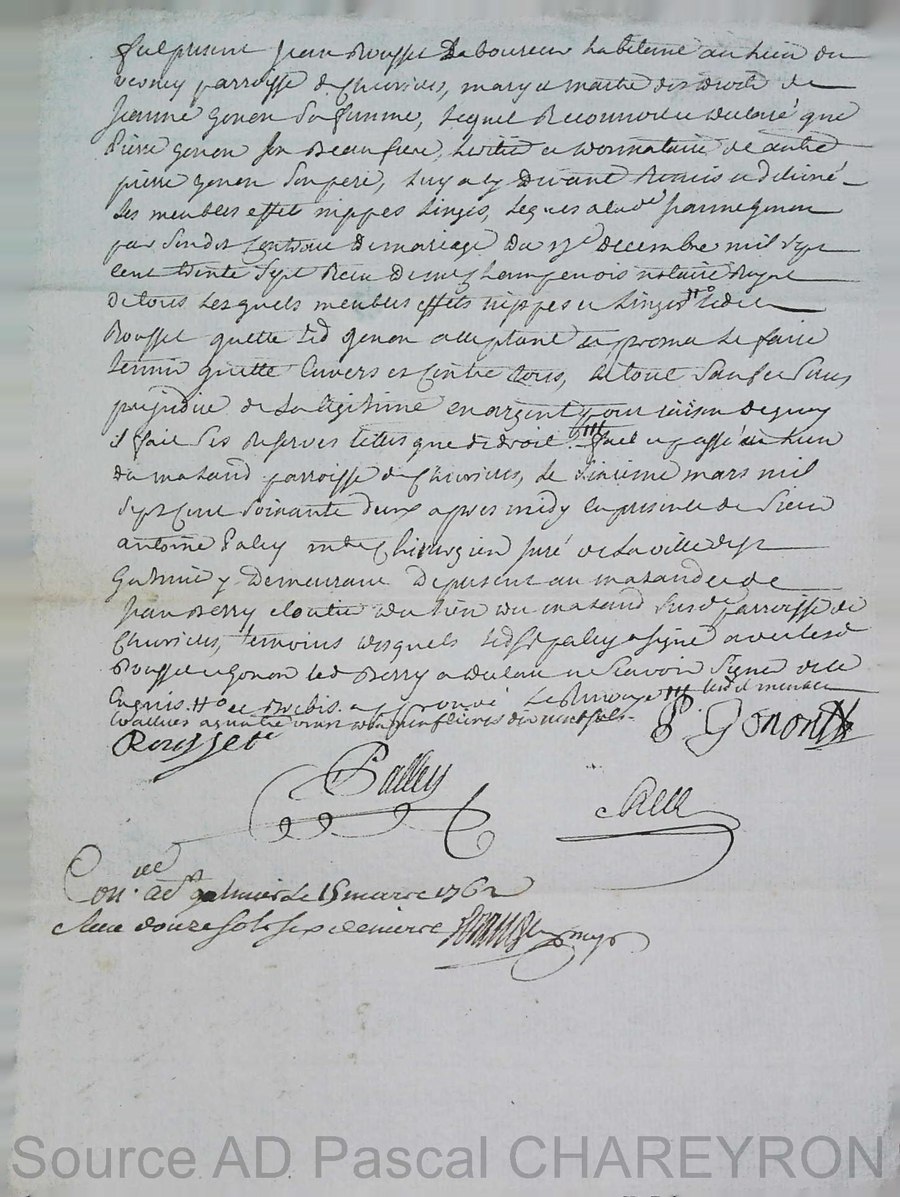 fut present Jean Rousset Laboureur habitant au lieu du
parroisse de Chevrieres, mary et maitre des droits de
Jeanne Gonon sa femme, lequel Reconnoit et declaré que
Pierre Gonon son Beaufrere, heritier et donnataire de autre
pierre Gonon son pere, luy a cy devant Remis et delivré
les meubles effets nippes linges, legues a lad.e Jeanne Gonon
par sondit Contract de mariage du 17e Decembre mil sept
cent trente sept Receu de me notaire Royal
de tous lesquels meubles effets nippes et linges led.
Rousset quitte led Gonon acceptant et promet le faire
tenir quitte envers et Contre tous, le tout sauf et sans
prejudice de la legitime en argent pour raison de quoy
il fait ses Reserves telles que de droit. fait et passé au lieu
du mazand parroisse de Chevrieres, le sixieme mars mil
sept Cent soixante deux apres midy en presence de sieur
antoine Paley me Chirurgien juré de la ville de st
Galmier y demeurant de present au mazand et de
Jean Berry cloutier du lieu du mazand susd. parroisse de
Chevrieres, temoins desquels led Sr paley a signé avec lesd
Rousset et Gonon led Berry a declaré ne scavoir signer de ce
Enquis. et approuvé
livres dix neuf sols.
Rousset P. Gonon
Palley
Con.lé a St galmier le 15 mars 1762
Receu douze sols six deniers
Source AD Pascal CHAREYRON